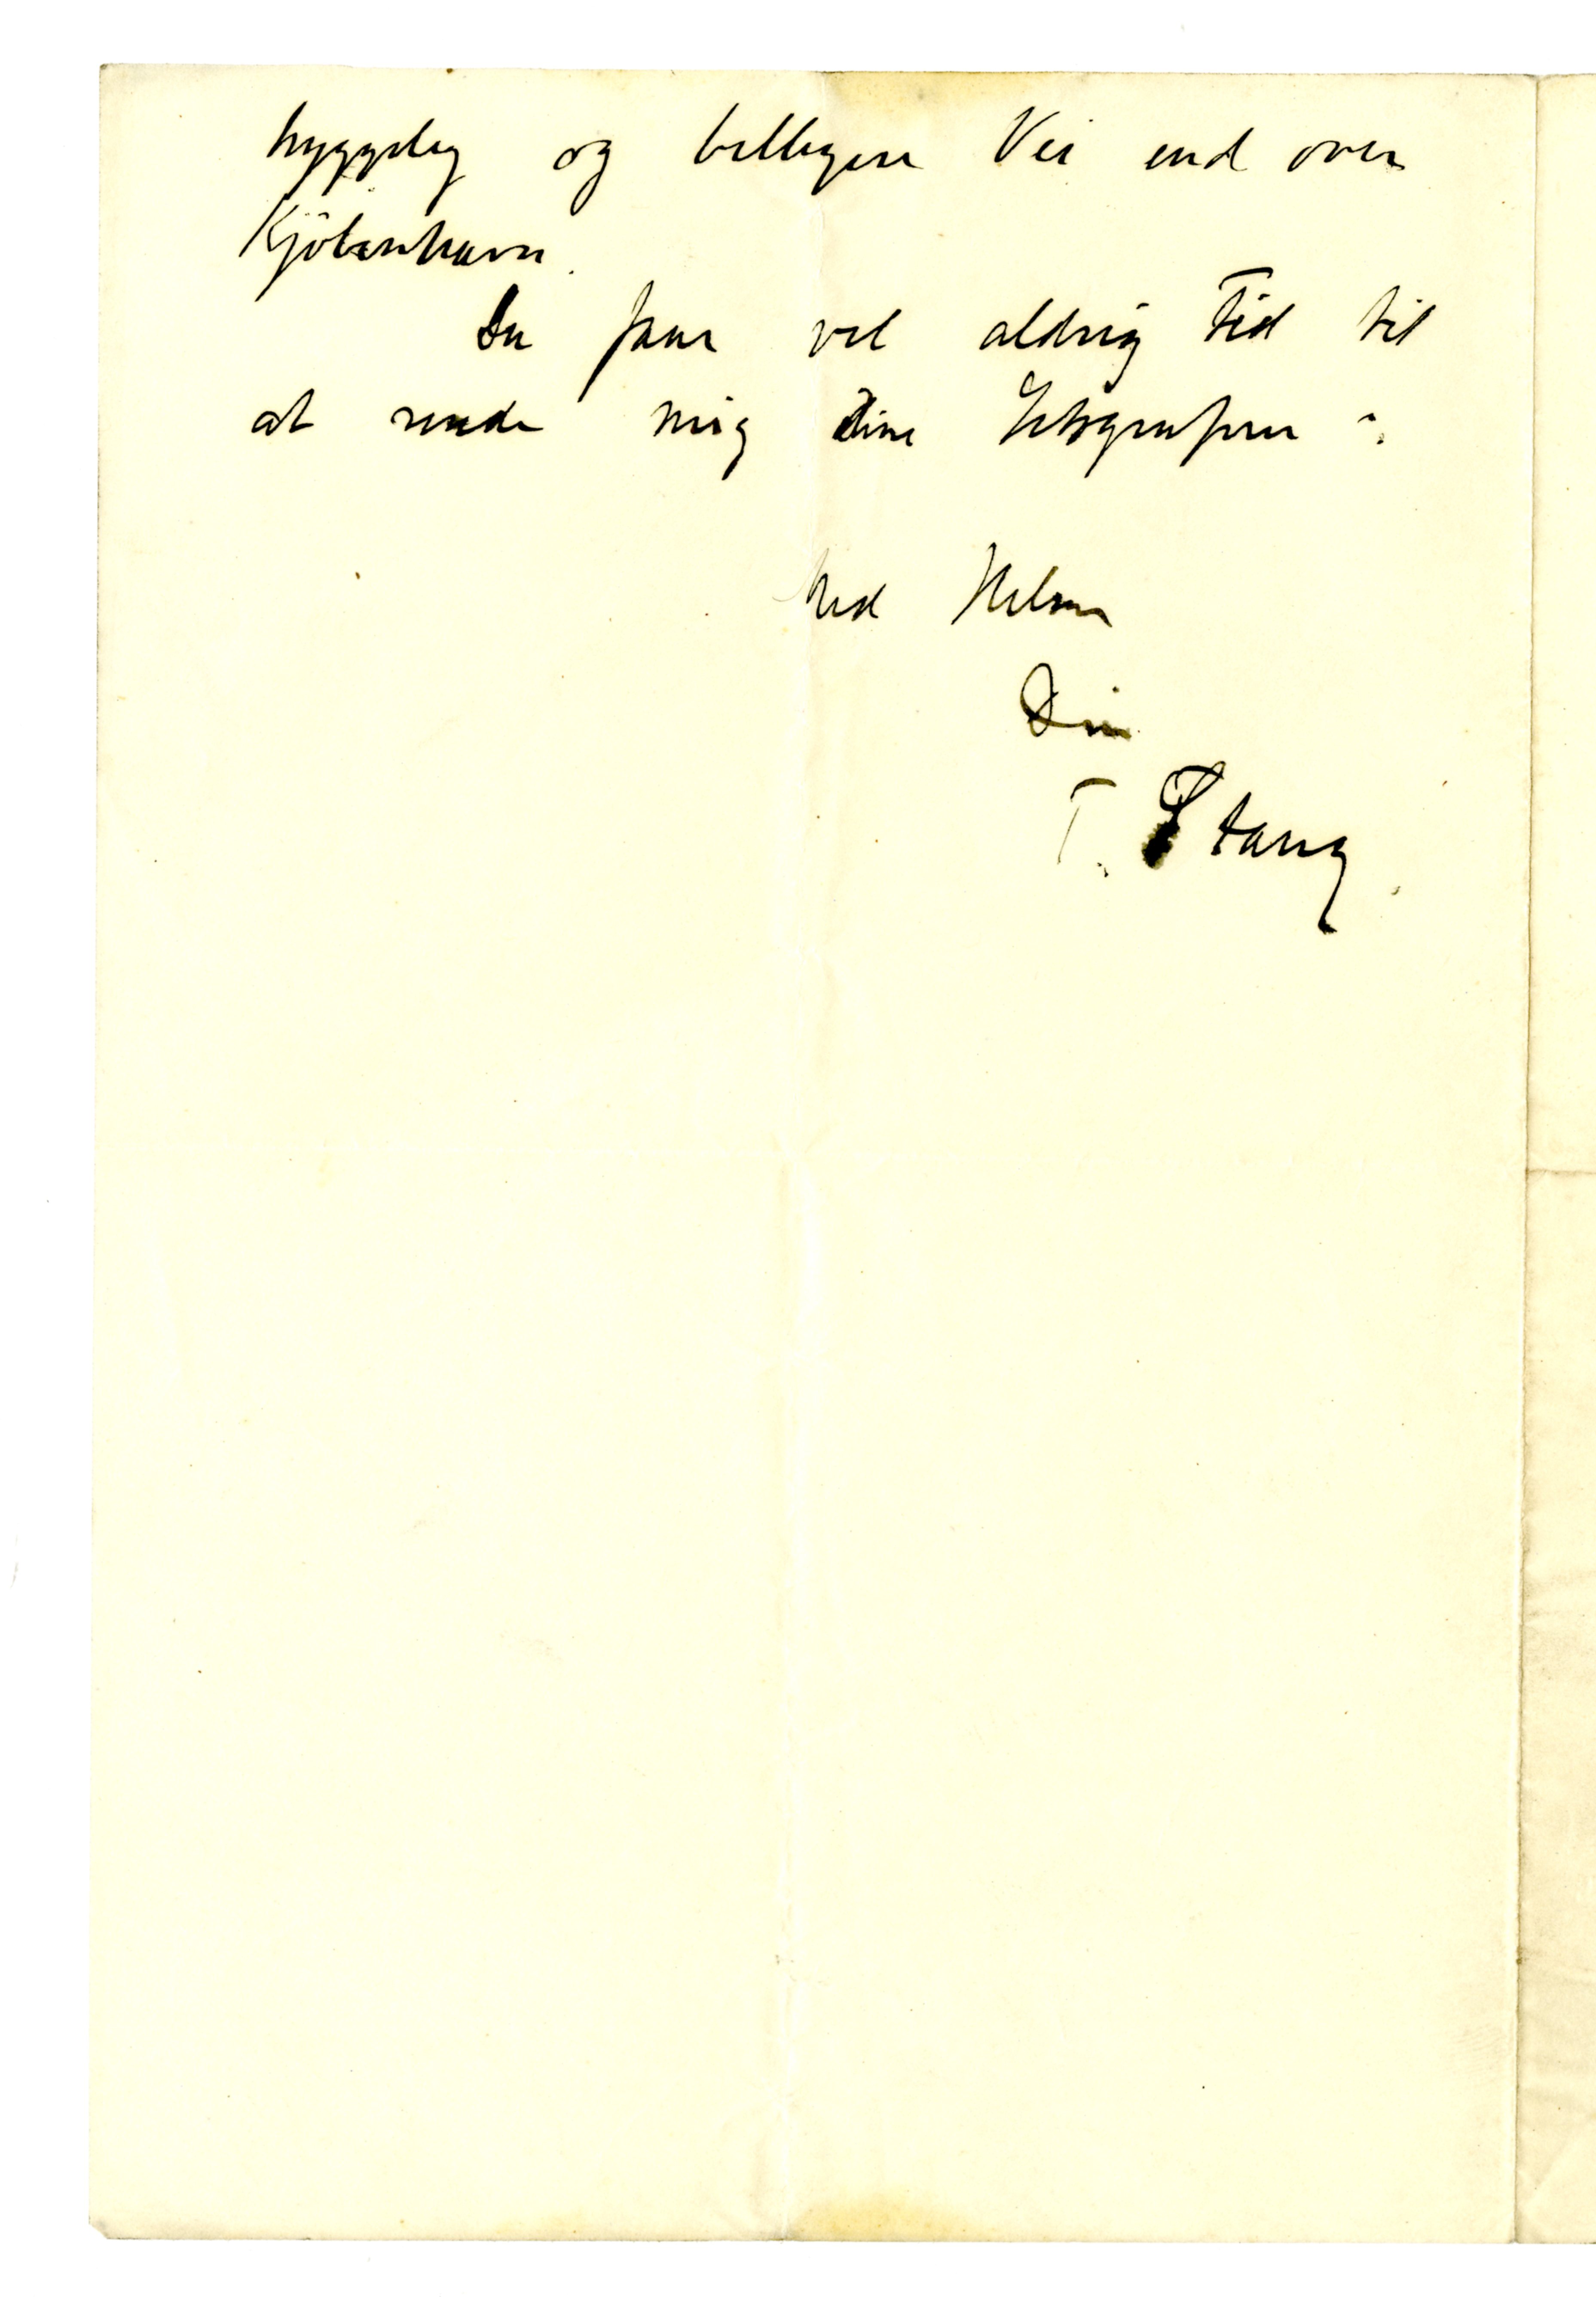 hyggelig og billigere Vei end over
Kjöbenhavn.
Du faar vel aldrig Tid til
at sende mig dine
Med Hilsen
Din
T. Stang.